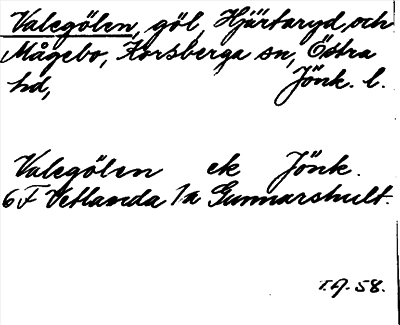 Valegölen, göl, Hjärtaryd, och
Mågebo, Korsberga sn, Östra
hd, Jönk. l.
Valegölen ek Jönk.
6F Vetlanda 1a Gunnarshult.
T.A. 58.